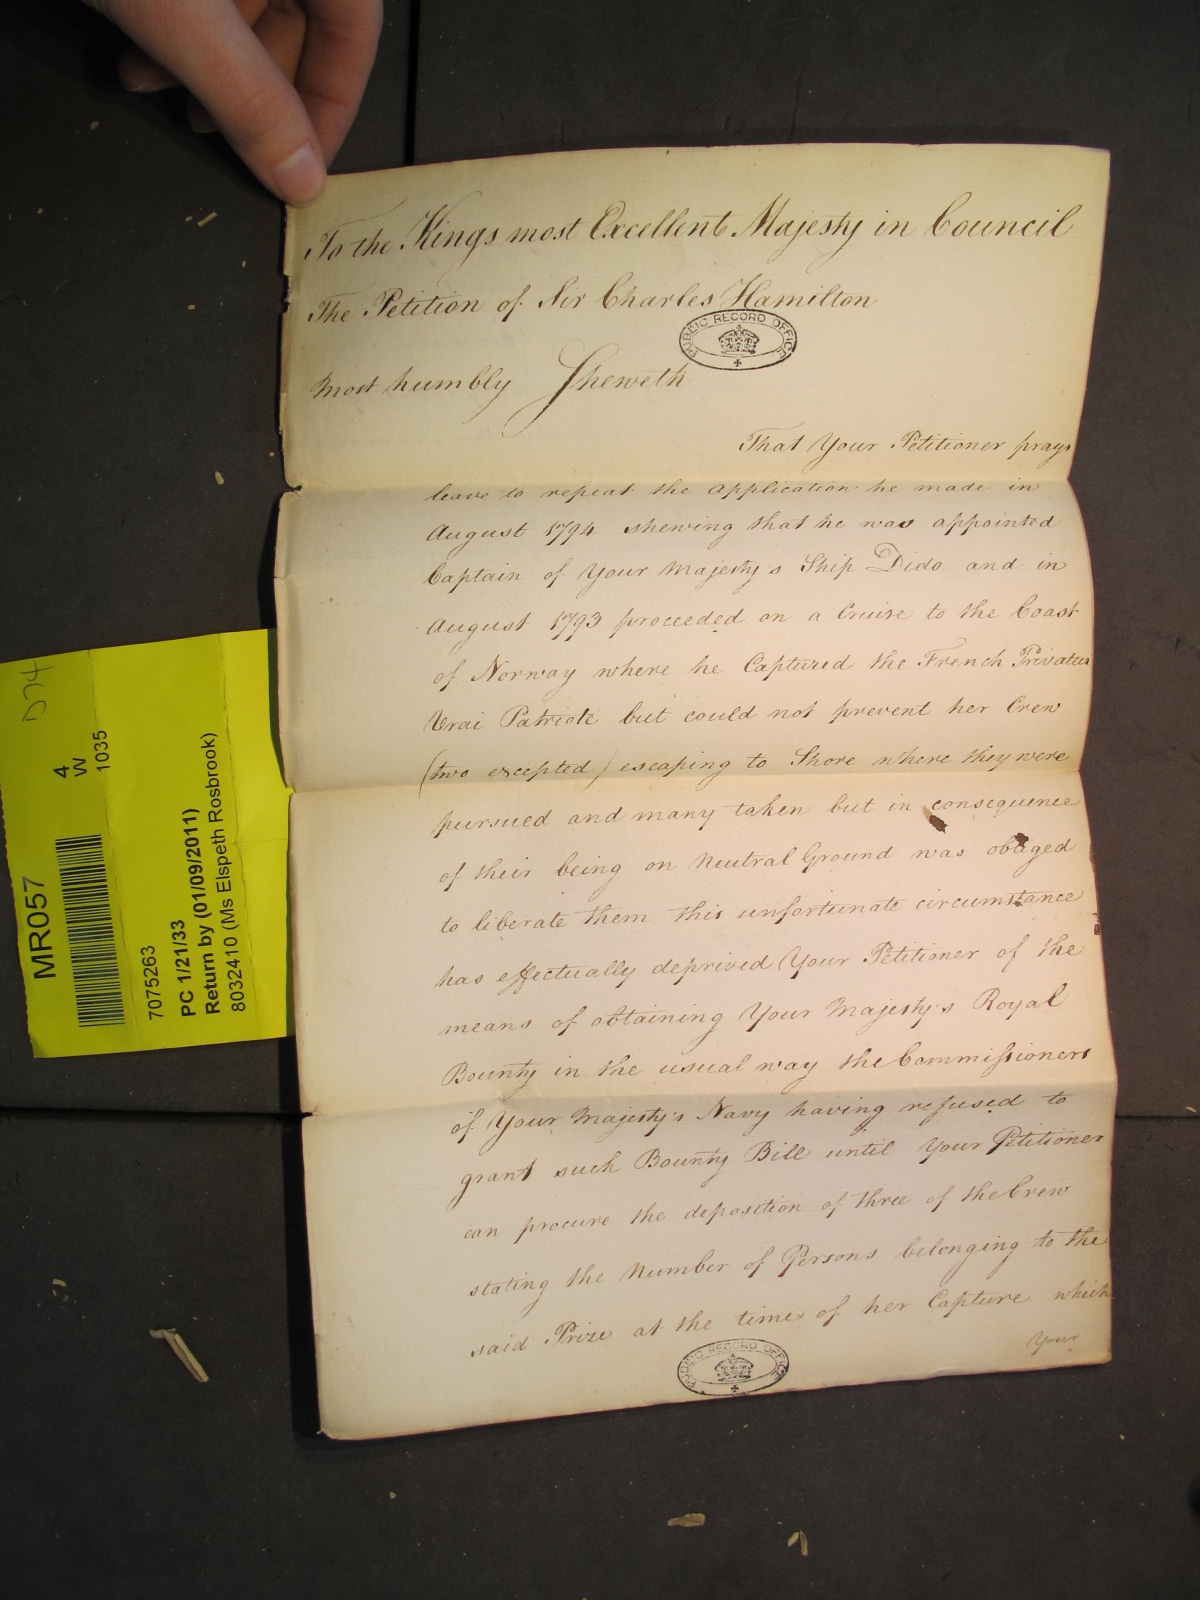 To the Kings most Excellent Majesty in Council
The Petition of Sir Charles Hamilton
PUBLIC RECORD OFFICE
most humbly Sheweth
That Your Petitioner prays
leave to repeat the application he made in
August 1794 shewing that he was appointed
Captain of Your Majesty's Ship Dido and in
August 1793 proceeded on a Cruise to the Coast
of Norway where he Captured the French Privateer
Vrai Patriote but could not prevent her Crew
(two excepted) escaping to Shore where they were
pursued and many taken but in consequence
of their being on Neutral Ground was obliged
to liberate them this unfortunate circumstance
has effectually deprived Your Petitioner of the
means of obtaining Your Majesty's Royal
Bounty in the usual way the Commissioners
of Your Majesty's Navy having refused to
grant such Bounty Bill until Your Petitioner
can procure the deposition of three of the Crew
stating the Number of Persons belonging to the
said Prize at the time of her Capture which
Your
PUBLIC RECORD OFFICE
D74
4
W
1035
MR057
7075263
PC 1/21/33
Return by (01/09/2011)
8032410 (Ms Elspeth Rosbrook)